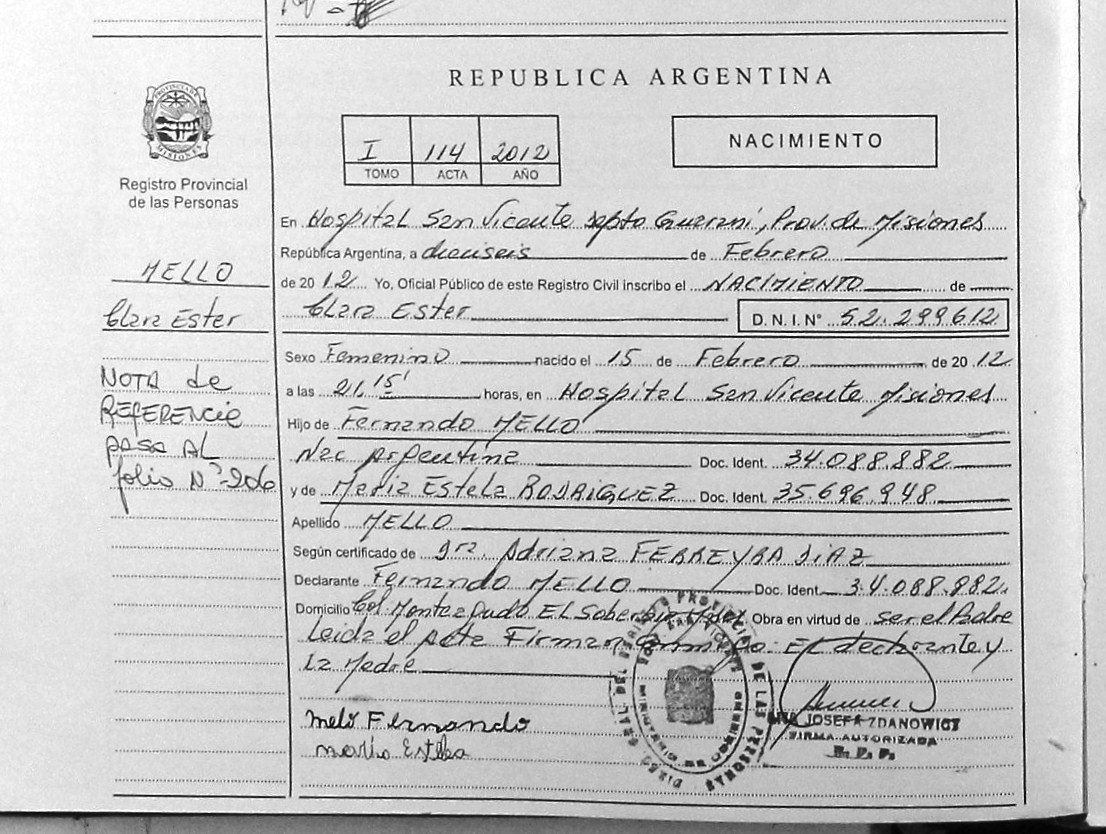 REPUBLICA ARGENTINA
PROVINCIA DE MISIONES
Registro Provincial
de las Personas
I 114 2012
TOMO ACTA AÑO
NACIMIENTO
MELLO
Clara Ester
NOTA de
REFERENCIA
PASA AL
folio Nº 206
En Hospital San Vicente Dpto Guaraní, Prov. de Misiones
República Argentina, a dieciseis de Febrero
de 2012 Yo, Oficial Público de este Registro Civil inscribo el NACIMIENTO de
Clara Ester D.N.I.Nº 52.299612
Sexo Femenino nacido el 15 de Febrero de 2012
a las 21,15' horas, en Hospital San Vicente Misiones
Hijo de Fernando MELLO
Nac Argentina Doc. Ident. 34.088.882
y de Maria Estela RODRIGUEZ Doc. Ident. 35.696.948
Apellido MELLO
Según certificado de Dra. Adriana FERREYRA DIAZ
Declarante Fernando MELLO Doc. Ident. 34.088.882
Domicilio Col. Monteagudo EL Soberbio Obra en virtud de ser el Padre
Leida el Acta Firman conmigo: El declarante y
La Madre
Melo Fernando
maria Estela
JOSEFA ZDANOWICZ
FIRMA AUTORIZADA
R. P. P.